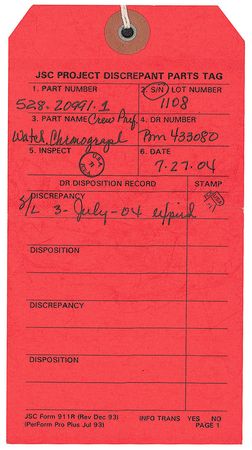 JSC PROJECT DISCREPANT PARTS TAG
1. PART NUMBER 2. S/N LOT NUMBER
528-20991-1 1108
3. PART NAME Crew Pref. 4. DR NUMBER
Watch, Chronograph Bm 433080
5. INSPECT 6. DATE
7-27-04
DR DISPOSITION RECORD STAMP
DISCREPANCY
S/L 3-July-04 expired
DISPOSITION
DISCREPANCY
DISPOSITION
JSC Form 911R (Rev Dec 93) INFO TRANS YES NO
(PerForm Pro Plus Jul 93) PAGE 1